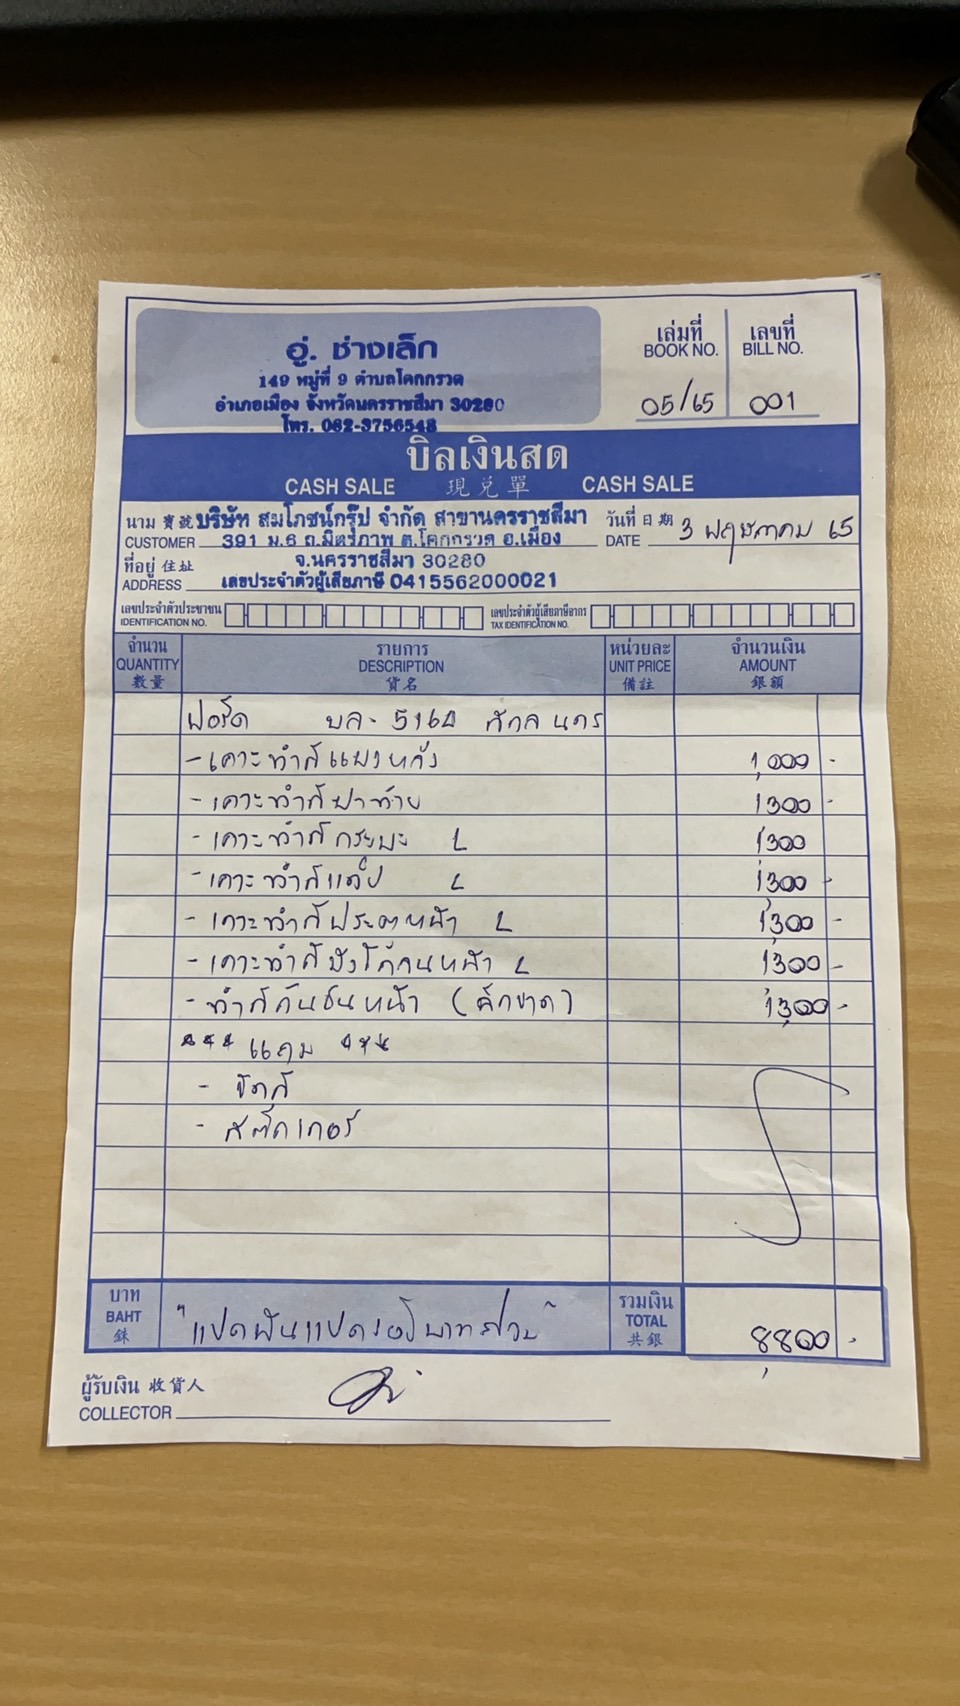 อู่. ช่างเล็ก
149 หมู่ที่ 9 ตำบลโคกกรวด
อำเภอเมือง จังหวัดนครราชสีมา 30280
โทร. 082-3756548
เล่มที่ เลขที่
BOOK NO. BILL NO.
05/65 001
บิลเงินสด
CASH SALE 現兌單 CASH SALE
นาม 寶號 บริษัท สมโภชน์กรุ๊ป จำกัด สาขานครราชสีมา วันที่ 日期 3 พฤษภาคม 65
CUSTOMER 391 ม.6 ถ.มิตรภาพ ต.โคกกรวด อ.เมือง DATE
ที่อยู่ 住址 จ.นครราชสีมา 30280
ADDRESS เลขประจำตัวผู้เสียภาษี 0415562000021
เลขประจำตัวประชาชน เลขประจำตัวผู้เสียภาษีอากร
IDENTIFICATION NO. TAX IDENTIFICATION NO.
จำนวน รายการ หน่วยละ จำนวนเงิน
QUANTITY DESCRIPTION UNIT PRICE AMOUNT
數量 貨名 備註 銀額
ฟอร์ด บล- สกลนคร
- เคาะทำสีแผงหลัง 1,000 -
- เคาะทำสีฝาท้าย 1300 -
- เคาะทำสีกระบะ L 1300
- เคาะทำสีแค๊ป L 1300 -
- เคาะทำสีประตูหน้า L 1,300 -
- เคาะทำสีบังโคลนหน้า L 1300 -
- ทำสีกันชนหน้า (สีกขาด) 1,300 -
*** แถม ***
- ขัดสี
- สติ๊กเกอร์
บาท รวมเงิน
BAHT "แปดพันแปดร้อยบาทถ้วน" TOTAL 8,800 -
銖 共銀
ผู้รับเงิน 收貨人
COLLECTOR